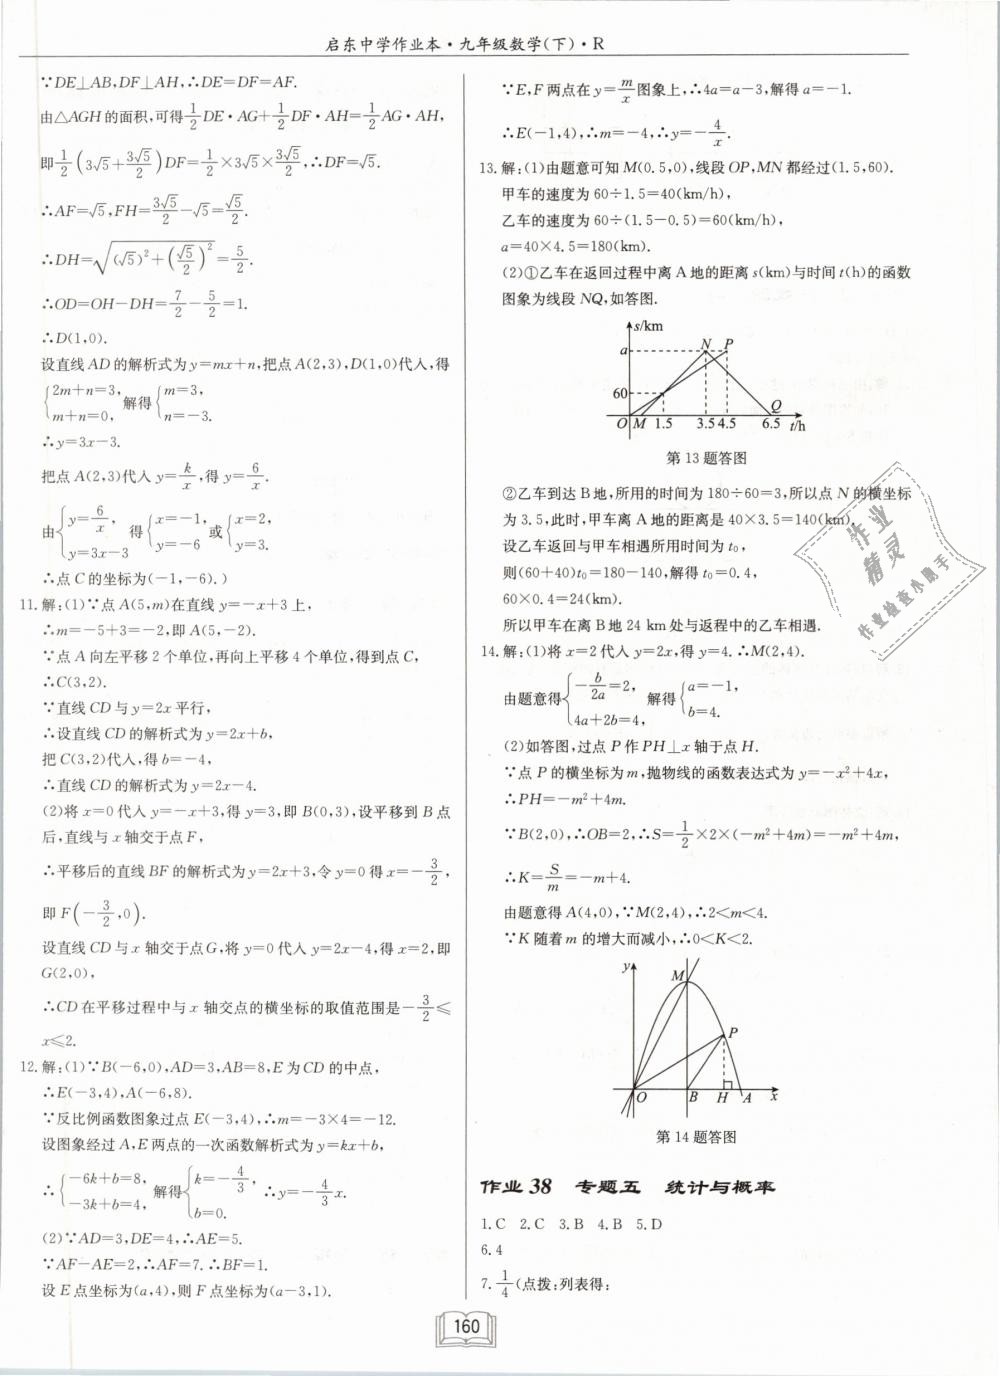 启东中学作业本·九年级数学(下)·R
∵DE⊥AB,DF⊥AH,∴DE=DF=AF.
由△AGH的面积,可得1/2DE·AG+1/2DF·AH=1/2AG·AH,
即1/2(3√5+3√5/2)DF=1/2×3√5×3√5/2,∴DF=√5.
∴AF=√5,FH=3√5/2-√5=√5/2.
∴DH=√((√5)²+(√5/2)²)=5/2.
∴OD=OH-DH=7/2-5/2=1.
∴D(1,0).
设直线AD的解析式为y=mx+n,把点A(2,3),D(1,0)代入,得
{2m+n=3, m+n=0, 解得{m=3, n=-3.
∴y=3x-3.
把点A(2,3)代入y=k/x,得y=6/x.
由{y=6/x, y=3x-3 得{x=-1, y=-6 或{x=2, y=3.
∴点C的坐标为(-1,-6).)
11.解:(1)∵点A(5,m)在直线y=-x+3上,
∴m=-5+3=-2,即A(5,-2).
∵点A向左平移2个单位,再向上平移4个单位,得到点C,
∴C(3,2).
∵直线CD与y=2x平行,
∴设直线CD的解析式为y=2x+b,
把C(3,2)代入,得b=-4,
∴直线CD的解析式为y=2x-4.
(2)将x=0代入y=-x+3,得y=3,即B(0,3),设平移到B点
后,直线与x轴交于点F,
∴平移后的直线BF的解析式为y=2x+3,令y=0得x=-3/2,
即F(-3/2,0).
设直线CD与x轴交于点G,将y=0代入y=2x-4,得x=2,即
G(2,0),
∴CD在平移过程中与x轴交点的横坐标的取值范围是-3/2≤
x≤2.
12.解:(1)∵B(-6,0),AD=3,AB=8,E为CD的中点,
∴E(-3,4),A(-6,8).
∵反比例函数图象过点E(-3,4),∴m=-3×4=-12.
设图象经过A,E两点的一次函数解析式为y=kx+b,
∴{-6k+b=8, -3k+b=4, 解得{k=-4/3, b=0. ∴y=-4/3x.
(2)∵AD=3,DE=4,∴AE=5.
∵AF-AE=2,∴AF=7.∴BF=1.
设E点坐标为(a,4),则F点坐标为(a-3,1).
∵E,F两点在y=m/x图象上,∴4a=a-3,解得a=-1.
∴E(-1,4),∴m=-4,∴y=-4/x.
13.解:(1)由题意可知M(0.5,0),线段OP,MN都经过(1.5,60).
甲车的速度为60÷1.5=40(km/h),
乙车的速度为60÷(1.5-0.5)=60(km/h),
a=40×4.5=180(km).
(2)①乙车在返回过程中离A地的距离s(km)与时间t(h)的函数
图象为线段NQ,如答图.
s/km
a N P
60
Q
O M 1.5 3.5 4.5 6.5 t/h
第13题答图
②乙车到达B地,所用的时间为180÷60=3,所以点N的横坐标
为3.5,此时,甲车离A地的距离是40×3.5=140(km),
设乙车返回与甲车相遇所用时间为t₀,
则(60+40)t₀=180-140,解得t₀=0.4,
60×0.4=24(km).
所以甲车在离B地24 km处与返程中的乙车相遇.
14.解:(1)将x=2代入y=2x,得y=4.∴M(2,4).
由题意得{-b/2a=2, 4a+2b=4, 解得{a=-1, b=4.
(2)如答图,过点P作PH⊥x轴于点H.
∵点P的横坐标为m,抛物线的函数表达式为y=-x²+4x,
∴PH=-m²+4m.
∵B(2,0),∴OB=2,∴S=1/2×2×(-m²+4m)=-m²+4m,
∴K=S/m=-m+4.
由题意得A(4,0),∵M(2,4),∴2<m<4.
∵K随着m的增大而减小,∴0<K<2.
y
M
P
O B H A x
第14题答图
作业38 专题五 统计与概率
1.C 2.C 3.B 4.B 5.D
6.4
7.1/4(点拨:列表得:
作业
精灵
作业检查小助手
160